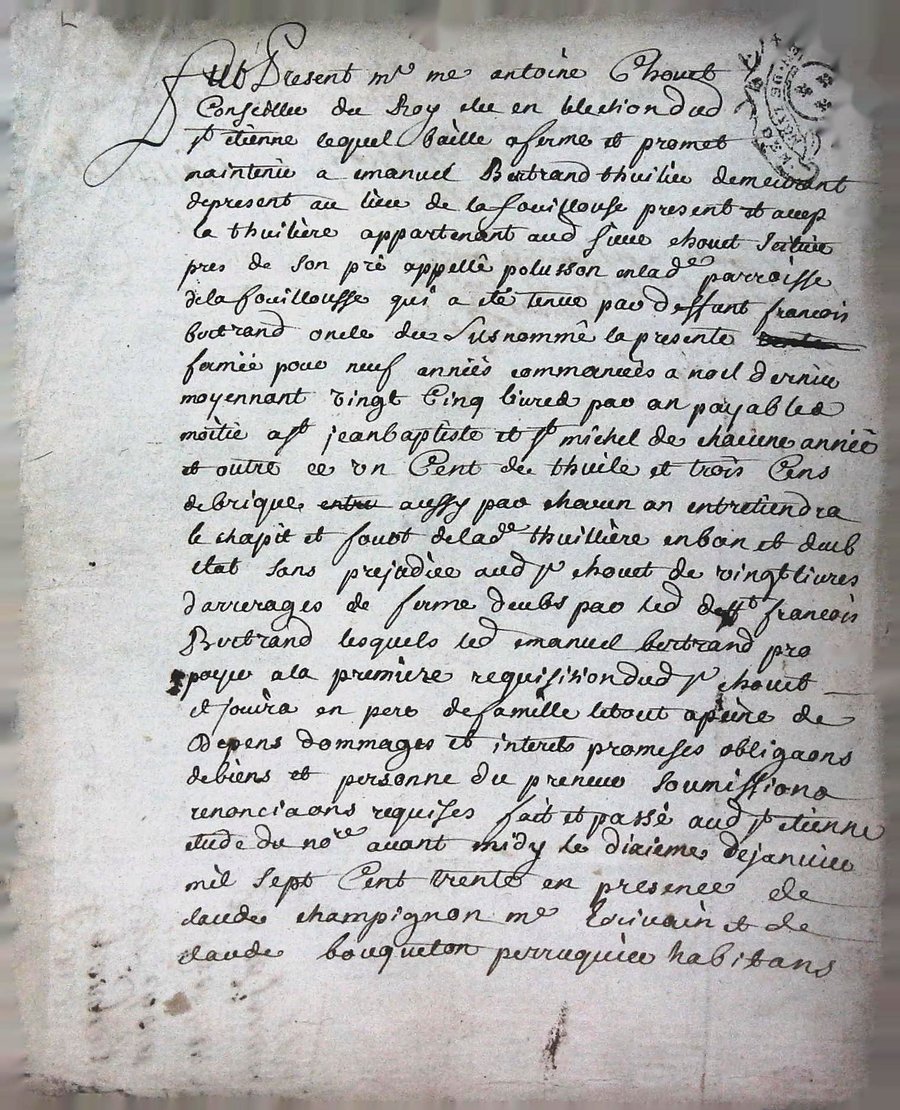 fut Present mr me antoine Chovet
Conseiller du Roy elu en lelection dud
st etienne lequel baille aferme et promet
maintenir a emanuel Bertrand thuilier demeurant
depresent au lieu de la fouillouse present et accep
la thuilière appartenant aud sieur chovet scituée
pres de son pré appellé polusson en lade parroisse
dela fouillousse qui a eté tenue par deffunt francois
bertrand oncle du susnommé la presente
fermée pour neuf années commancées a noel dernier
moyennant vingt Cinq livres par an payables
moitie a st jeanbaptiste et st michel de chacune année
et outre ce un Cent de thuile et trois Cens
de brique entre aussy par chacun an entretiendra
le chapit et fourt de lade thuillière enbon et deub
etat sans prejudice aud sr chovet de vingt livres
darrerages de ferme deubs par led defft francois
Bertrand lesquels led emanuel bertrand pro
payer ala première requisision dud sr chovet
et jouira en pere de famille letout apeine de
Depens dommages et interets promeses obligaons
de biens et personne du preneur soumissions
renonciaons requises fait et passé aud st etienne
etude du nore avant midy le dixiemes de janvier
mil sept Cent trente en presence de
claude champignon me Ecrivain et de
claude bouqueton perruquier habitans